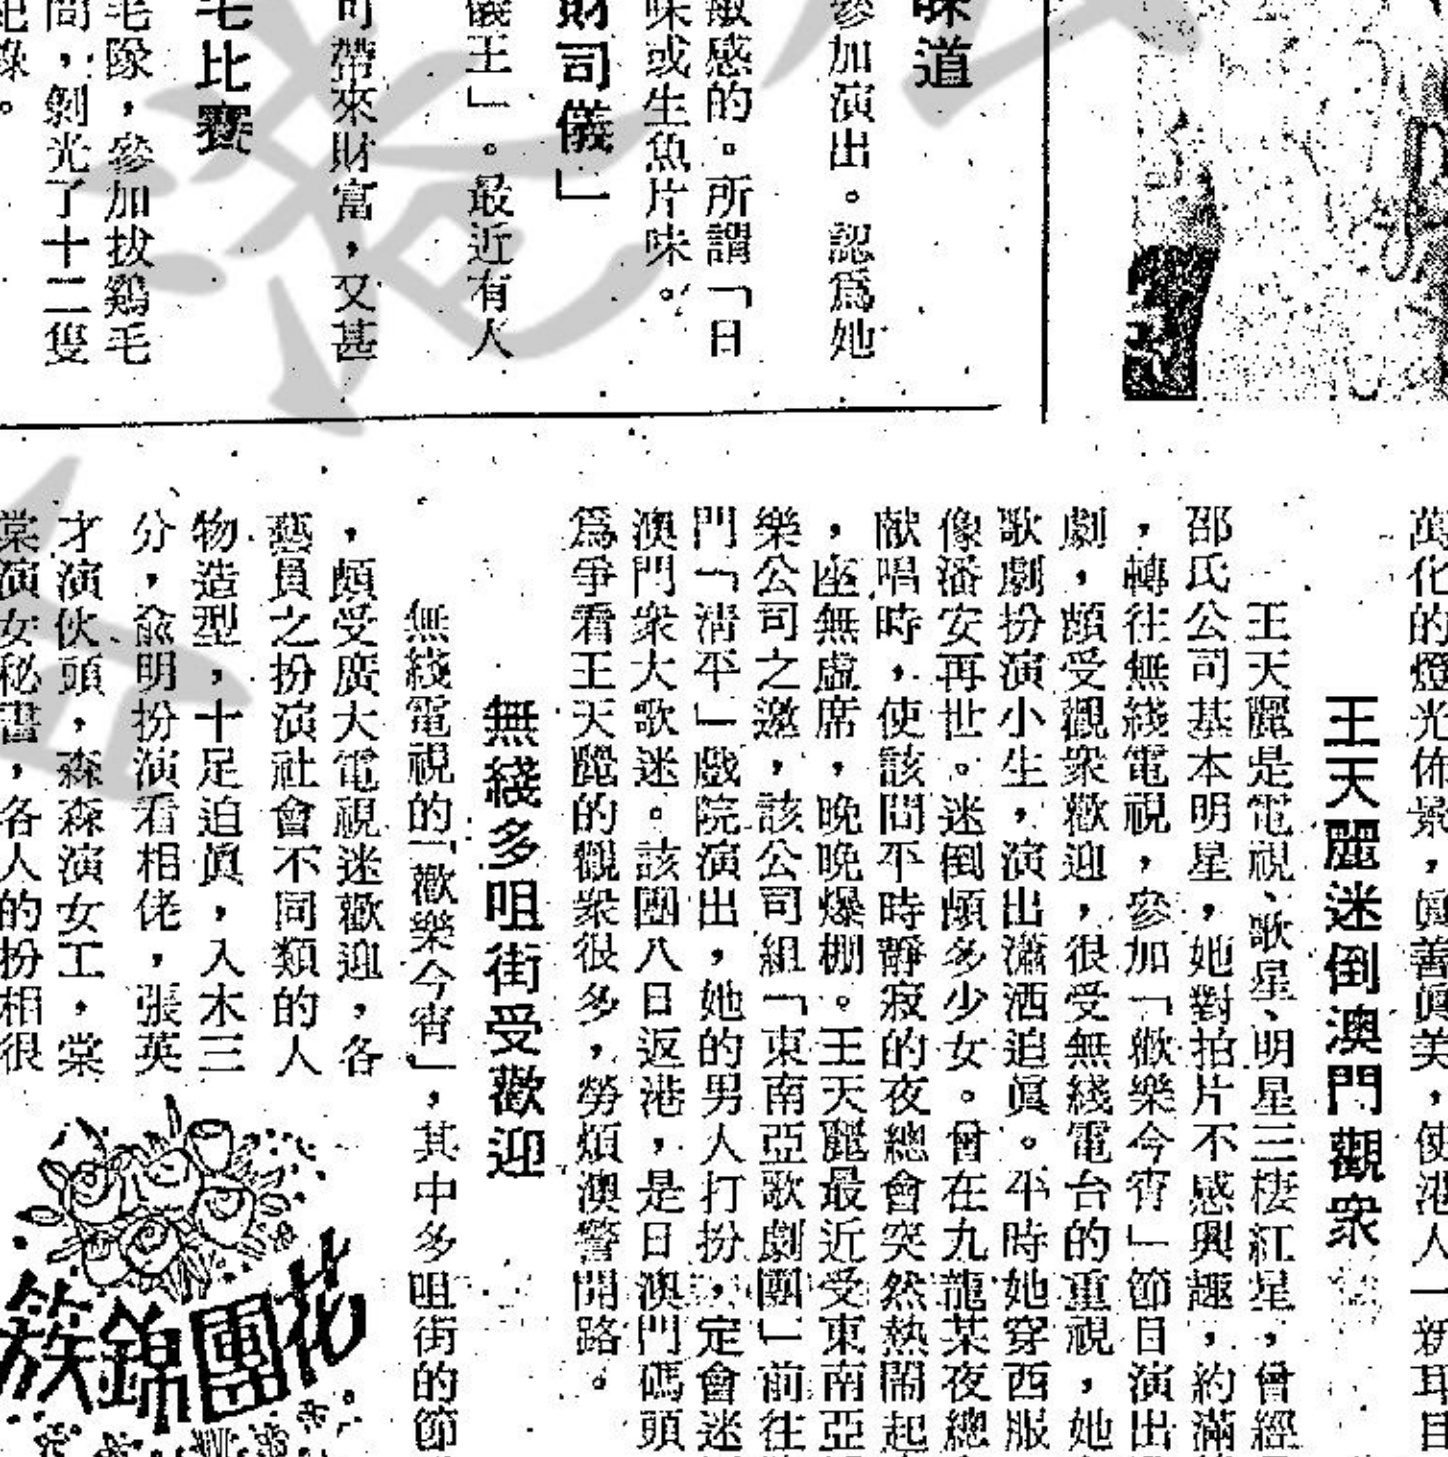 味道
參加演出。認爲她
敏感的。所謂「日
味或生魚片味。
財司儀」
儀王」。最近有人
可帶來財富，又甚
毛比賽
毛隊，參加拔鷄毛
間，剝光了十二隻
紀錄。
萬化的燈光佈景，眞善眞美，使港人一新耳目
王天麗迷倒澳門觀衆
王天麗是電視、歌星、明星三棲紅星，曾經
邵氏公司基本明星，她對拍片不感興趣，約滿
，轉往無綫電視，參加「歡樂今宵」節目演出
劇，頗受觀衆歡迎，很受無綫電台的重視，她
歌劇扮演小生，演出瀟洒追眞。平時她穿西服
像潘安再世。迷倒頗多少女。曾在九龍某夜總
献唱時，使該間平時靜寂的夜總會突然熱鬧起
，座無虛席，晚晚爆棚。王天麗最近受東南亞
樂公司之邀，該公司組「東南亞歌劇團」前往
門「淸平」戲院演出，她的男人打扮，定會迷
澳門衆大歌迷。該團八日返港，是日澳門碼頭
爲爭看王天麗的觀衆很多，勞煩澳警開路。
無綫多咀街受歡迎
無綫電視的「歡樂今宵」，其中多咀街的節
，頗受廣大電視迷歡迎，各
藝員之扮演社會不同類的人
物造型，十足迫眞，入木三
分，兪明扮演看相佬，張英
才演伙頭，森森演女工，棠
棠演女秘書，各人的扮相很
花團錦簇